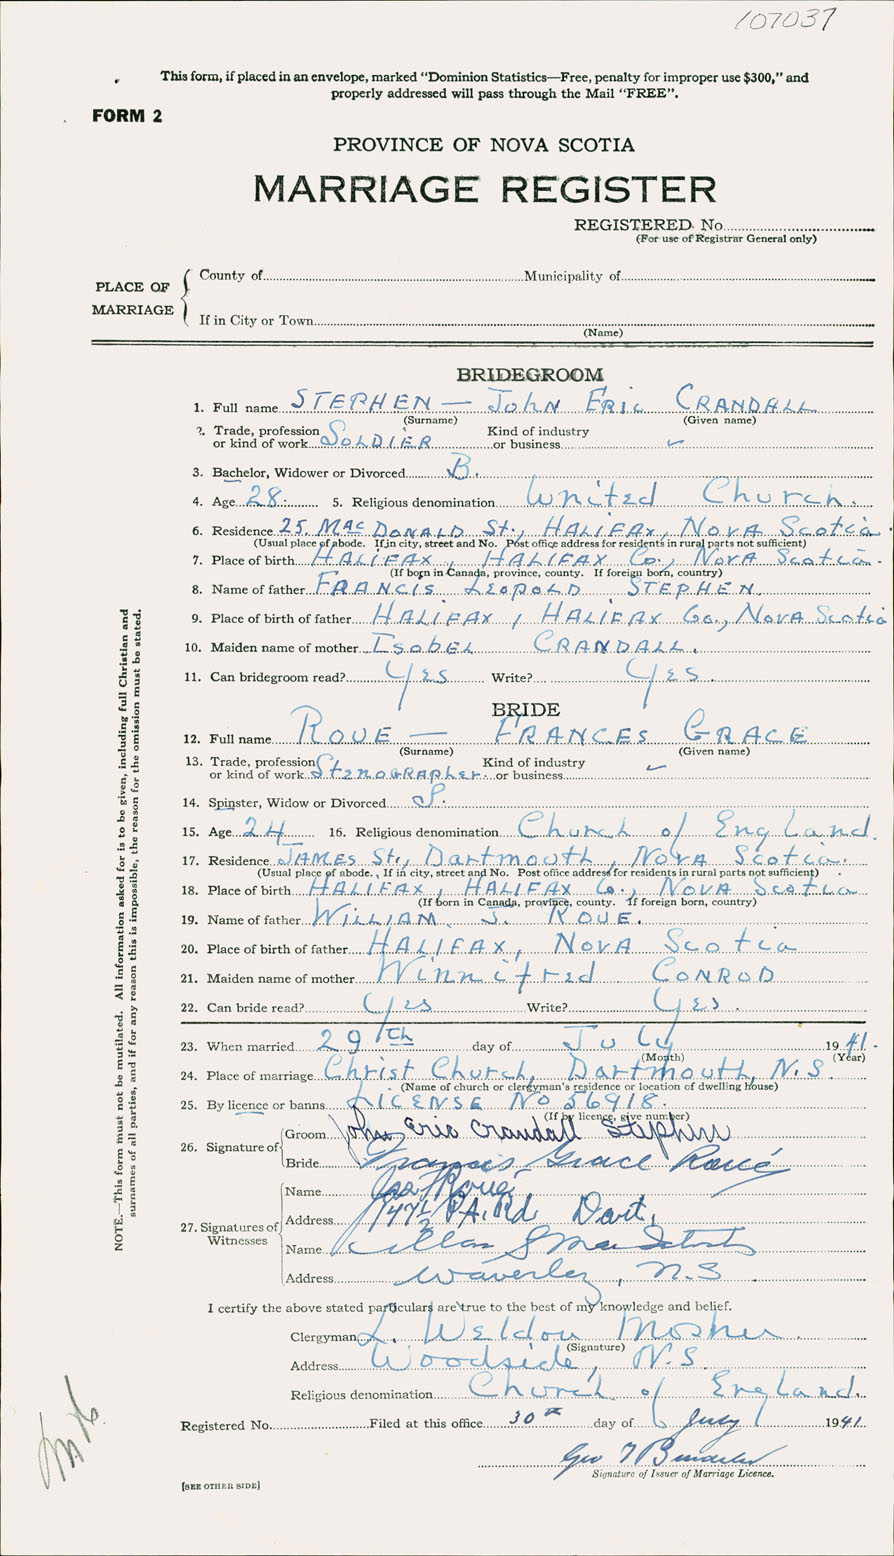 107037
This form, if placed in an envelope, marked "Dominion Statistics—Free, penalty for improper use $300," and
properly addressed will pass through the Mail "FREE".
FORM 2
PROVINCE OF NOVA SCOTIA
MARRIAGE REGISTER
REGISTERED No.
(For use of Registrar General only)
PLACE OF MARRIAGE
County of Municipality of
If in City or Town
(Name)
BRIDEGROOM
1. Full name STEPHEN — John Eric CRANDALL
(Surname) (Given name)
2. Trade, profession or kind of work SOLDIER Kind of industry or business ✓
3. Bachelor, Widower or Divorced B.
4. Age 28. 5. Religious denomination United Church.
6. Residence 25. MacDONALD St., HALIFAX, NOVA Scotia.
(Usual place of abode. If in city, street and No. Post office address for residents in rural parts not sufficient)
7. Place of birth HALIFAX, HALIFAX Co., NOVA Scotia.
(If born in Canada, province, county. If foreign born, country)
8. Name of father FRANCIS LEOPOLD STEPHEN.
9. Place of birth of father HALIFAX, HALIFAX Co., NOVA Scotia
10. Maiden name of mother ISOBEL CRANDALL.
11. Can bridegroom read? Yes Write? Yes.
BRIDE
12. Full name ROUE — FRANCES GRACE
(Surname) (Given name)
13. Trade, profession or kind of work Stenographer. Kind of industry or business ✓
14. Spinster, Widow or Divorced S.
15. Age 24 16. Religious denomination Church of England.
17. Residence JAMES St., Dartmouth, NOVA Scotia.
(Usual place of abode. If in city, street and No. Post office address for residents in rural parts not sufficient)
18. Place of birth HALIFAX, HALIFAX Co., NOVA Scotia
(If born in Canada, province, county. If foreign born, country)
19. Name of father WILLIAM J. ROUE.
20. Place of birth of father HALIFAX, NOVA Scotia
21. Maiden name of mother Winnifred CONROD
22. Can bride read? Yes Write? Yes.
23. When married 29th day of July 1941.
(Month) (Year)
24. Place of marriage Christ Church, Dartmouth, N.S.
(Name of church or clergyman's residence or location of dwelling house)
25. By licence or banns LICENSE No 56918.
(If by licence, give number)
26. Signature of
Groom John Eric Crandall Stephen
Bride Frances Grace Roué
27. Signatures of Witnesses
Name Jas Roué
Address 147½ P.A. Rd Dart.
Name
Address Waverley, N.S
I certify the above stated particulars are true to the best of my knowledge and belief.
Clergyman L. Weldon Mosher.
(Signature)
Address Woodside, N.S.
Religious denomination Church of England.
Registered No. Filed at this office 30th day of July 1941
Geo
Signature of Issuer of Marriage Licence.
[SEE OTHER SIDE]
NOTE.—This form must not be mutilated. All information asked for is to be given, including full Christian and
surnames of all parties, and if for any reason this is impossible, the reason for the omission must be stated.